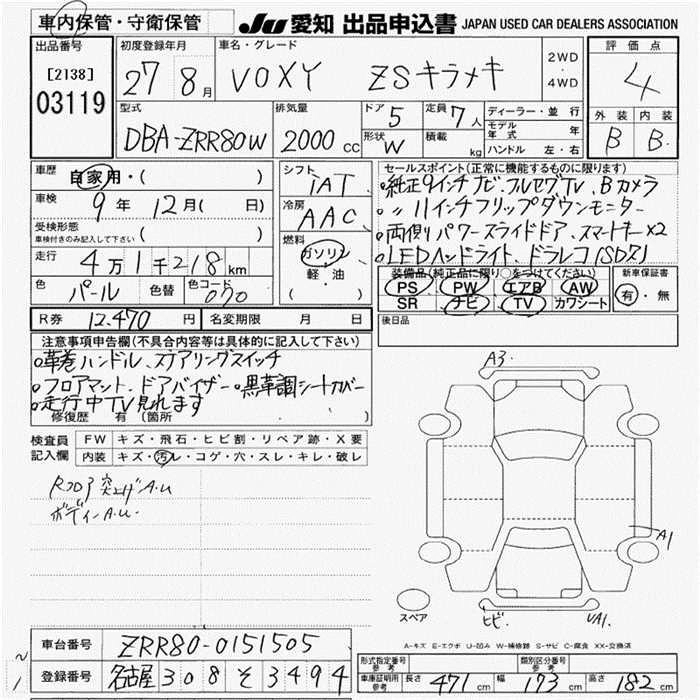 車内保管・守衛保管
JU 愛知 出品申込書 JAPAN USED CAR DEALERS ASSOCIATION
出品番号
[2138]
03119
初度登録年月
27 8月
車名・グレード
VOXY ZSキラメキ
2WD
・
4WD
評価点
4
外装 内装
B B
型式
DBA-ZRR80W
排気量
2000 cc
ドア 5
形状 W
定員 7人
積載 kg
ディーラー・並行
モデル年式 年
ハンドル 左・右
車歴
自家用・( )
車検
9年 12月( 日)
受検形態
車検付きのみ記入して下さい ( )
走行
4万1千218km
色
パール
色替
色コード
070
シフト
IAT
冷房
AAC
燃料
ガソリン
軽・油
( )
セールスポイント(正常に機能するものに限ります)
・純正9インチナビ・フルセグTV、Bカメラ
・〃11インチフリップダウンモニター
・両側パワースライドドア、スマートキー×2
・LEDヘッドライト、ドラレコ
装備品(純正品に限り○をつけてください)
PS PW エアB AW
SR ナビ TV カワシート
新車保証書
有・無
R券 12,470円
名変期限 月 日
後日品
注意事項申告欄(不具合内容等は具体的に記入して下さい)
・革巻ハンドル、ステアリングスイッチ
・フロアマット、ドアバイザー・黒革調シートカバー
・走行中TV見れます
修復歴 有(箇所 )
検査員
記入欄
FW キズ・飛石・ヒビ割・リペア跡・X要
内装 キズ・汚レ・コゲ・穴・スレ・キレ・破レ
Rフロア突上げA.U
ボディーA.U.
A3.
A1
スペア
ヒビ. UA1.
A-キズ E-エクボ U-凹み W-補修跡 S-サビ C-腐食 XX-交換済
車台番号 ZRR80-0151505
登録番号 名古屋 308 そ 3494
~1
形式指定番号
参考
類別区分番号
参考
車庫証明用
参考
長さ 471cm 幅 173cm 高さ 182cm